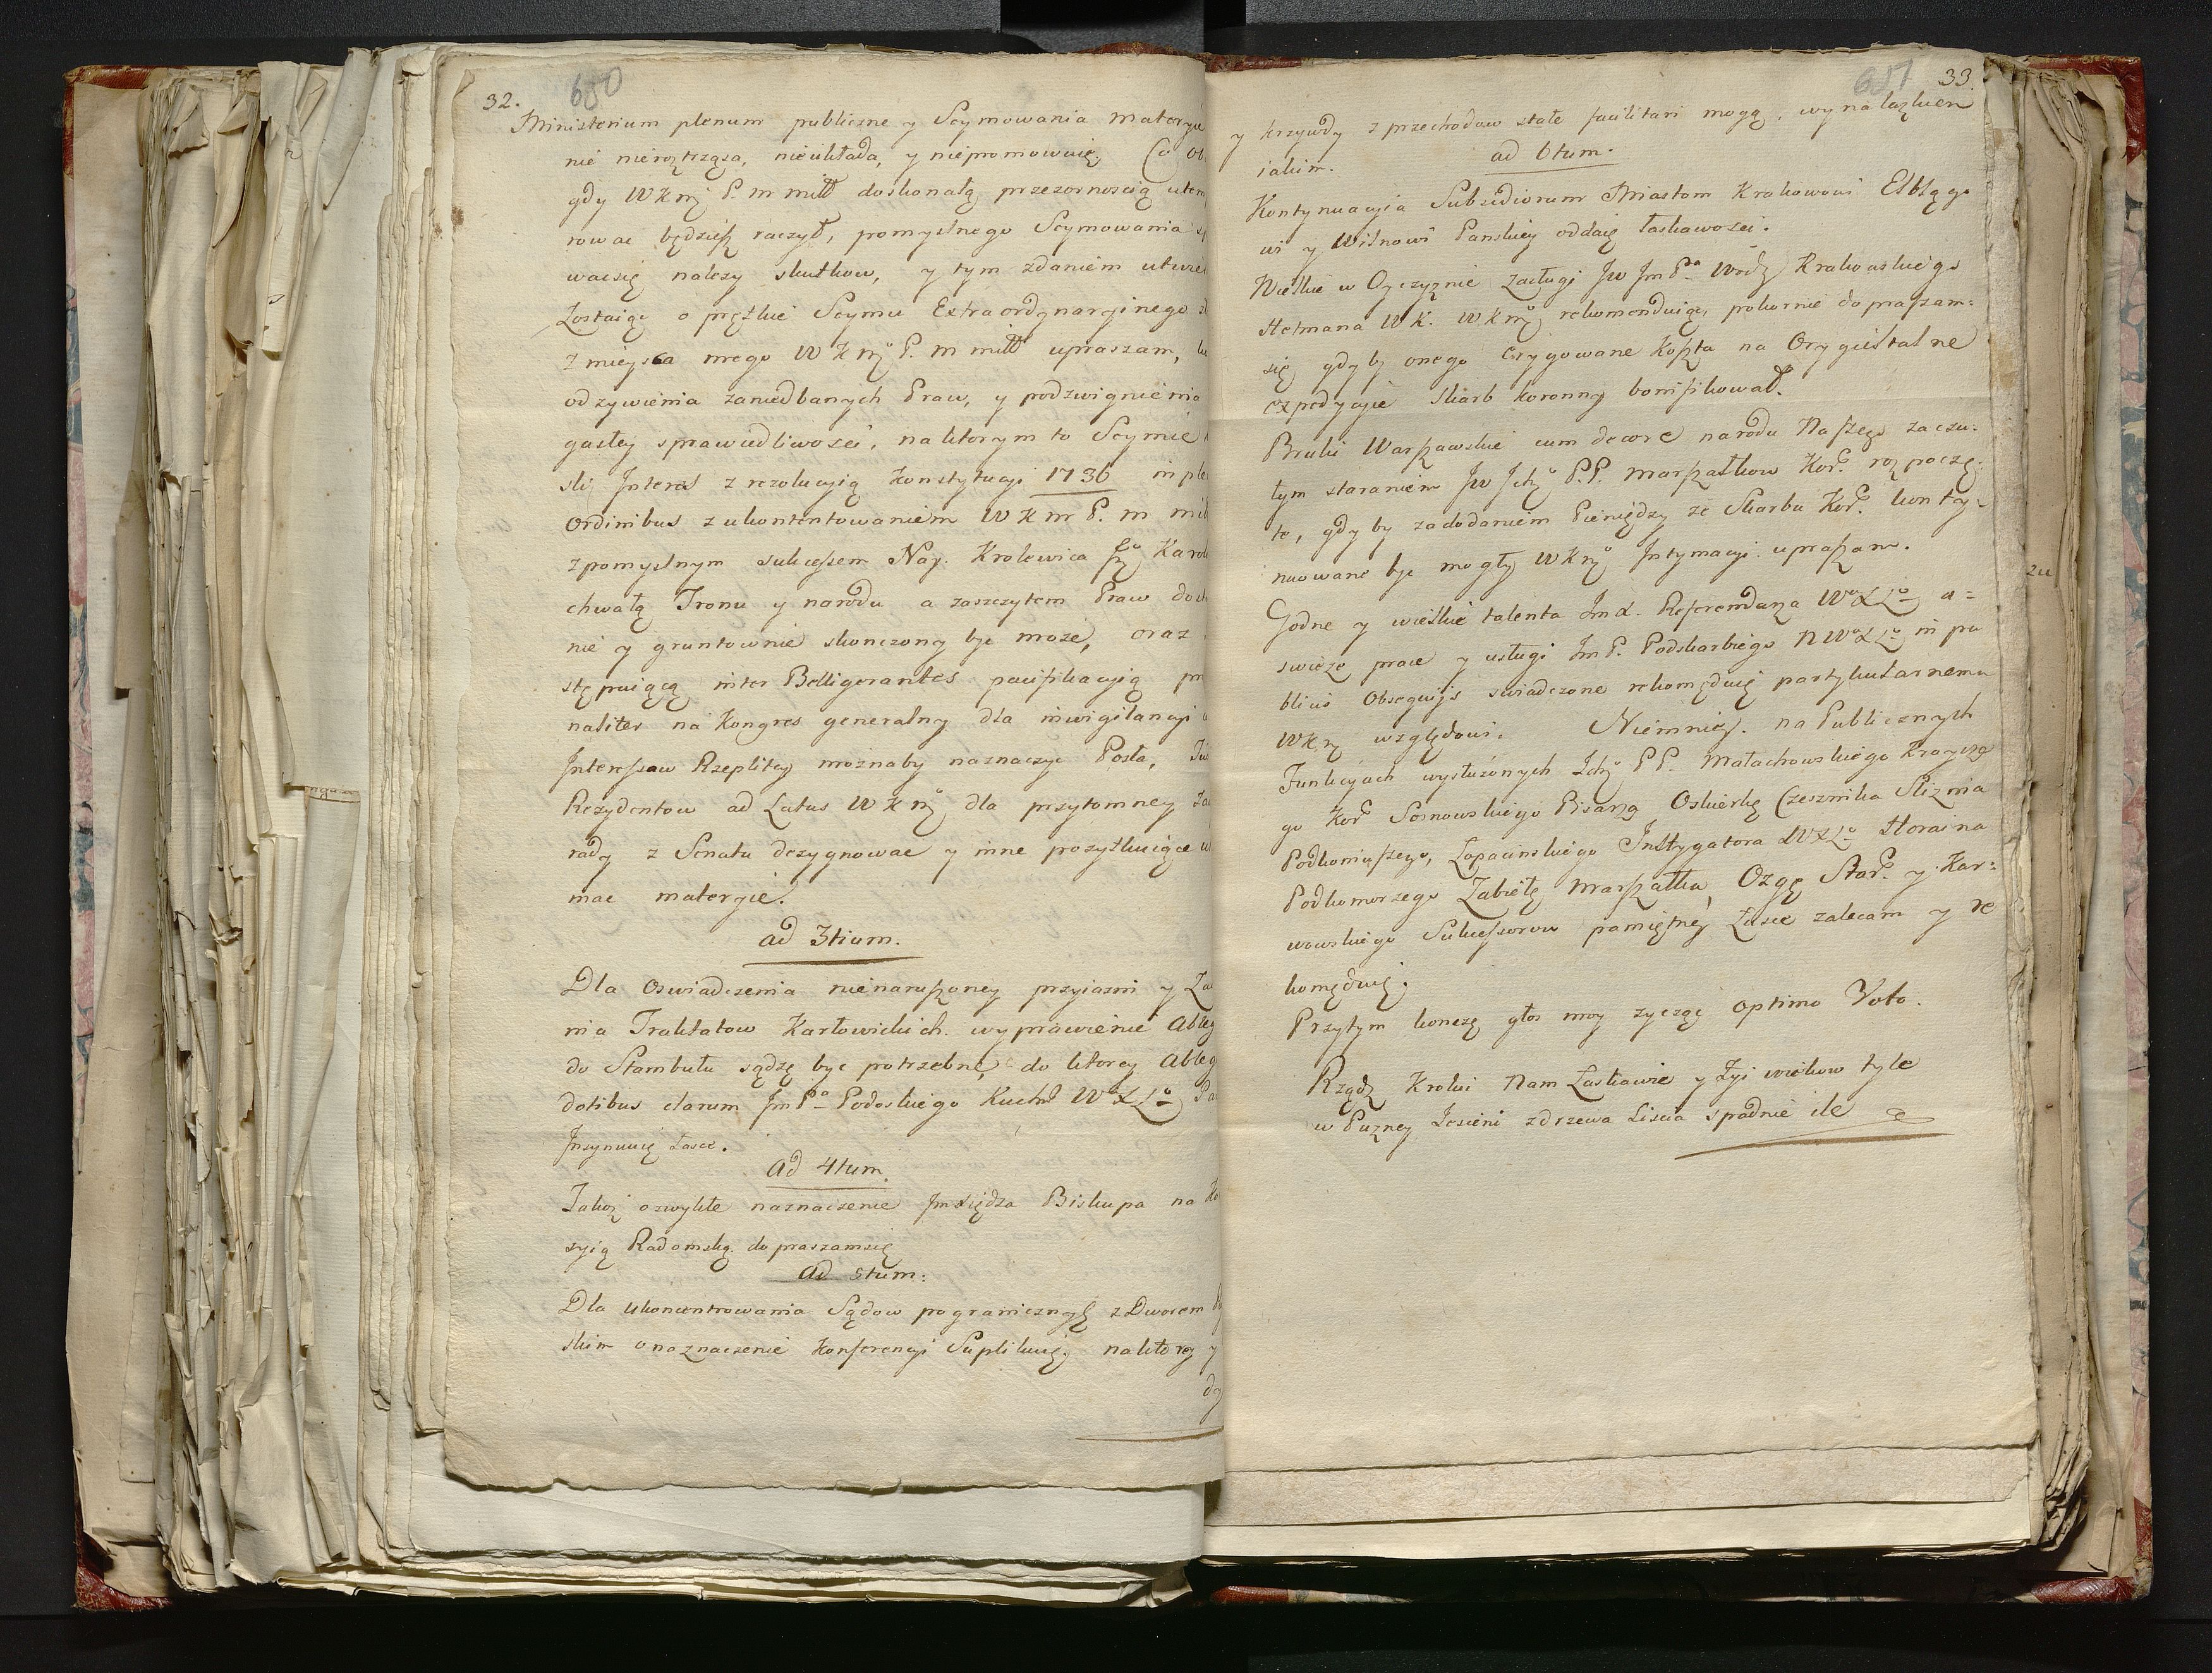 32. 650
Ministerium plenum publiczne y Seymowania materyi
nie nieroztrząsa, nieukłada, y niepromowuie. Co
gdy WKMć P. m miłł doskonałą przezornoscią
rowac będziesz raczył, pomyslnego Seymowania
wacsię nalezy skutkow, y tym zdaniem
Zostaiąc o prętkie Seymu Extraordynaryinego
z mieysca mego WKMć P. m miłł upraszam,
odzywienia zaniedbanych Praw, y podzwignienia
gasłey sprawiedliwosci, naktorym to Seymie
Interes z rezolucyią Konstytucyi 1736 in
Ordinibus z ukontentowaniem WKM P. m
zpomyslnym sukcessem Nay. Krolewica Jmć
chwałą Tronu y narodu a zaszczytem Praw
nie y gruntownie skonczony byc moze, oraz
stępuiącą inter Belligerantes pacifikacyią
naliter na Kongres generalny dla inwigilancyi
Interessow Rzeplitey moznaby naznaczyc Posła,
Rezydentow ad Latus WKMć dla przytomney
rady z Senatu dezygnowac y inne pozytkuiące
mac materyie.
ad 3tium.
Dla oswiadczenia nienaruszoney przyiazni y
nia Traktatow Karłowickich wyprawienie
do Stambułu sądzę byc potrzebne, do ktorey
dotibus clarum JmPa Podoskiego Kuchm WoXLo
Insynuuię Łasce.
Ad 4tum.
Takoz ozwykłe naznaczenie Jmxiędza Biskupa na
syią Radomską dopraszamsię
Ad 5tum.
Dla Ukoncentrowania Sądow pogranicznych z Dworem
skim onaznaczenie Konferencyi Suplikuię, naktorey y
657 33.
y krzywdy z przechodow stałe facilitari mogą, wynalazkiem
iakim.
ad 6tum.
Kontynuacyia Subsidiorum Miastom Krakowowi Elbląго
wi y Wilnowi Panskiey oddaię łaskawosci.
Wielkie w Oyczyznie Zasługi Jw JmPa Wody Krakowskiego
Hetmana WK. WKMć rekomenduiąc, pokornie dopraszam=
się gdyby onego erygowane Koszta na Oryentalne
expedycyie Skarb koronny bonifikował.
Bruki Warszawskie cum decore narodu Naszego zaczu=
łym staraniem Jw Ichć P.P. Marszałkow Kor. rozpoczę=
te, gdyby zadodaniem Pieniędzy ze Skarbu Kor. konty=
nuowane byc mogły WKMć Intymacyi upraszam.
Godne y wielkie talenta Jmx. Referendarza WoXLo a=
swieze prace y usługi JmP. Podskarbiego NWoXLo in pu
blicis Obsequijs swiadczone rekomęduię partykularnemu
WKMć względowi. Niemniey. na Publicznych
Funkcyiach wysłuzonych Ichć PP. Małachowskiego Kraycze
go Kor. Sosnowskiego Pisarza Oskierkę Czesznika Sliznia
Podkoniuszego, Łopacinskiego Instygatora WXLo Horaina
Podkomorzego Zabiełę Marszałka, Ozgę Star. y Kar=
wowskiego Sukcessorow pamiętney Łasce zalecam y re
komęduię.
Przytym konczę głos moy zycząc optimo Voto.
Rządz Krolui Nam Łaskawie y Zyi wiekow tyle
w Puzney Jesieni zdrzewa Liscia spadnie ile